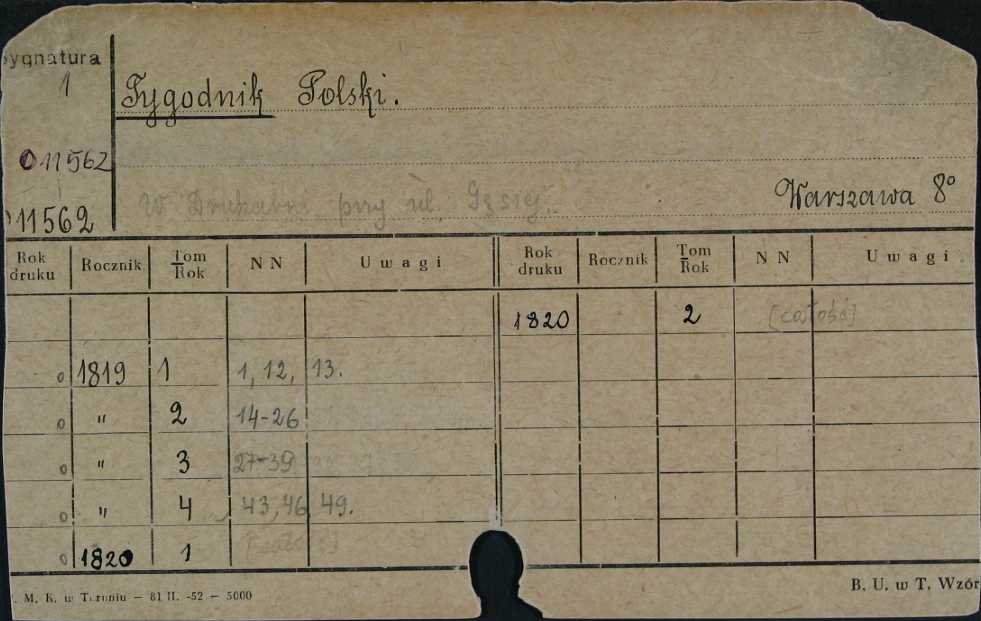 Sygnatura
1
Tygodnik Polski.
011562
W Drukarni przy ul. Gęsiej.
Warszawa 8°
011562
Rok druku Rocznik Tom Rok N N Uwagi Rok druku Rocznik Tom Rok N N Uwagi
1820 2 [całość]
0 1819 1 1, 12, 13.
0 " 2 14-26
0 " 3 27-39
0 " 4 43, 46, 49.
0 1820 1 [całość]
M. K. w Toruniu — 81 II. -52 — 5000
B. U. w T. Wzór